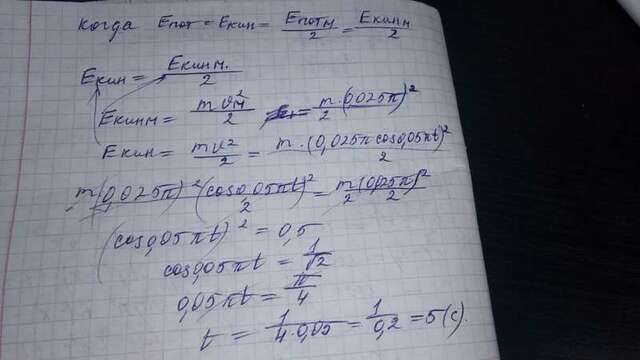 когда Eпот = Eкин = Eпот м/2 = Eкин м/2
Eкин = Eкин м./2
Eкин м = mv²м/2 = m/2 · (0,025π)²
Eкин = mv²/2 = m·(0,025π cos0,05πt)²/2
m(0,025π)²(cos0,05πt)²/2 = m(0,025π)²/2·2
(cos0,05πt)² = 0,5
cos0,05πt = 1/√2
0,05πt = π/4
t = 1/4·0,05 = 1/0,2 = 5(с).